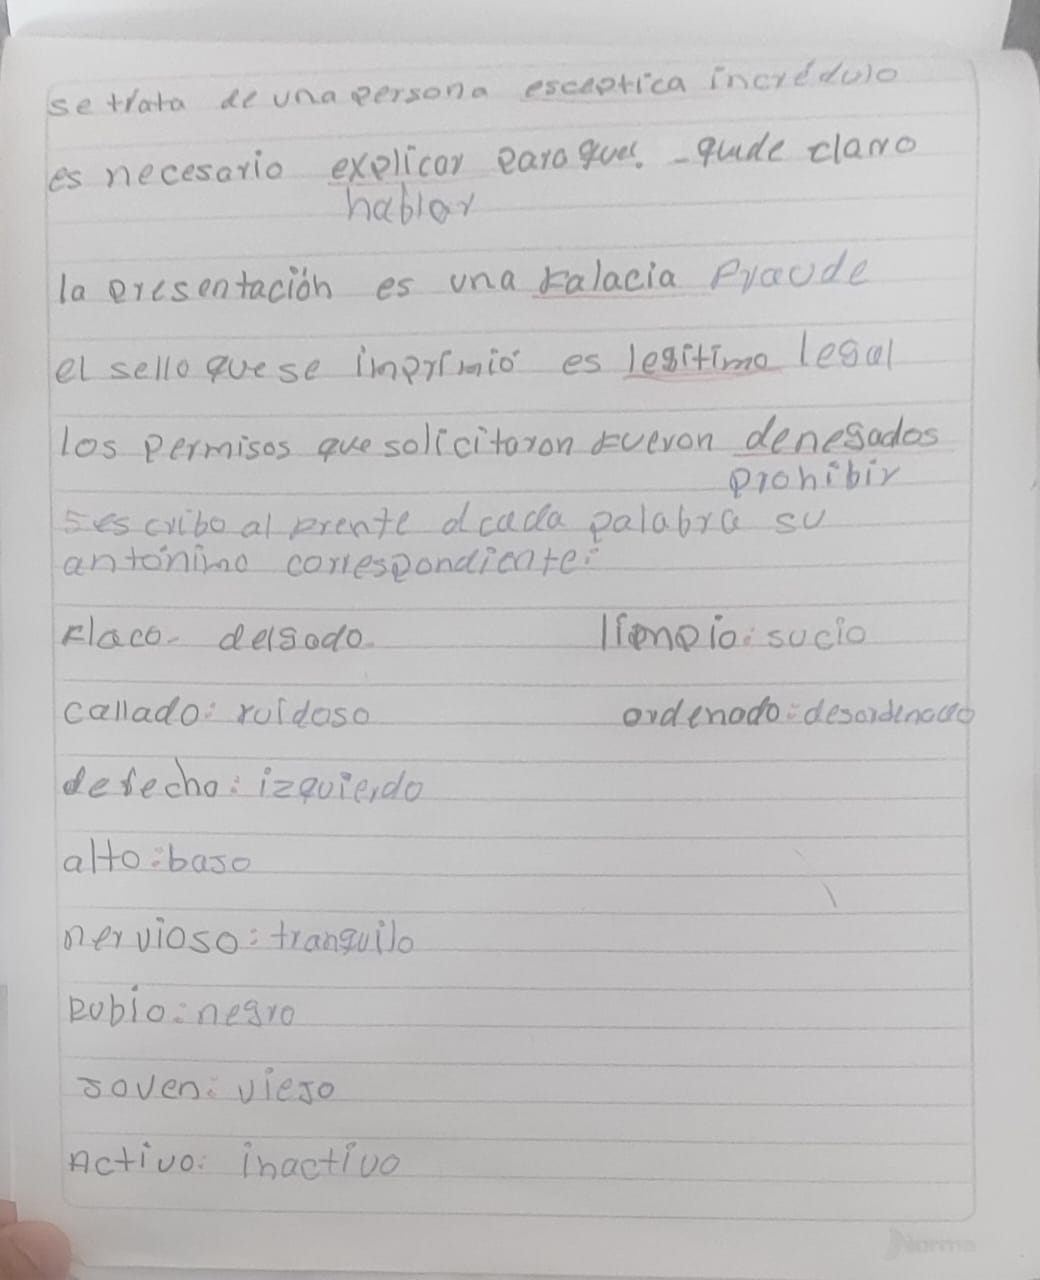 se trata de una persona esceptica incrédulo
es necesario explicar para que quede claro
hablar
la presentación es una falacia Fraude
el sello que se imprimió es legítimo legal
los permisos que solicitaron fueron denegados
prohibir
5 escribo al frente d cada palabra su
antónimo correspondiente:
Flaco- delgado limpio: sucio
callado: ruidoso ordenado: desordenado
derecho: izquierdo
alto: bajo
nervioso: tranquilo
Rubio: negro
joven: viejo
Activo: inactivo
Norma